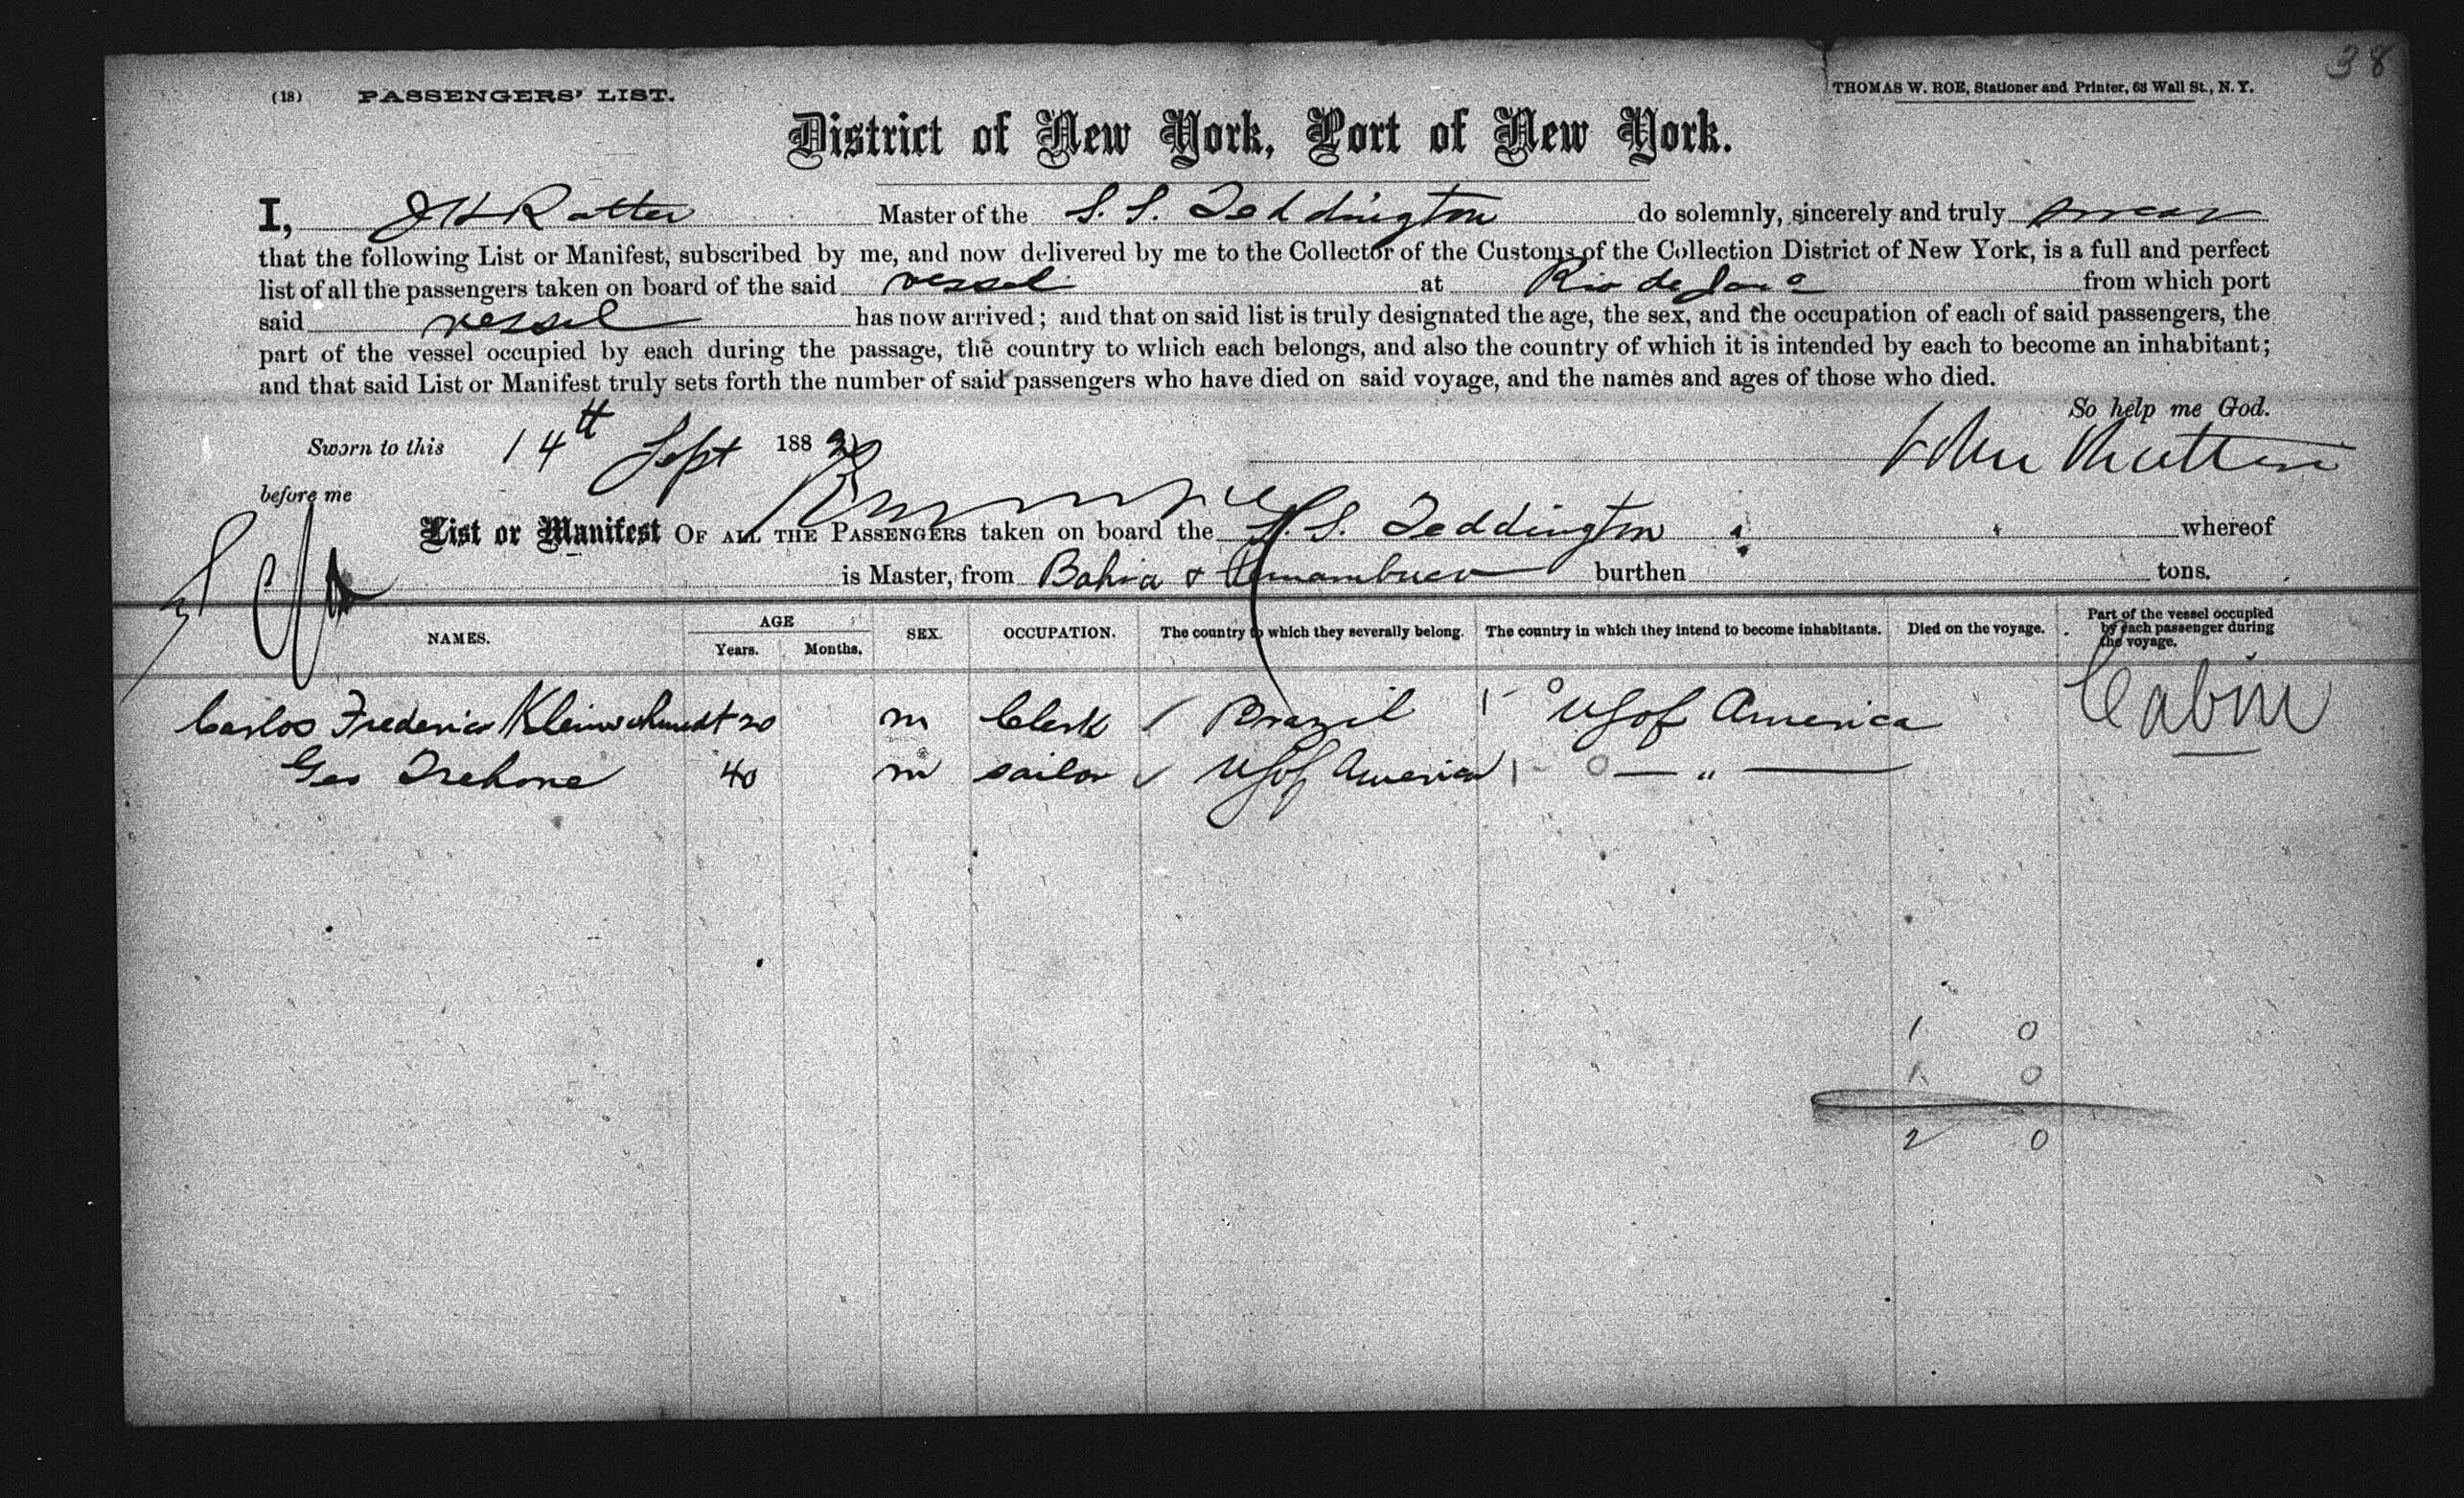 38
(18) PASSENGERS' LIST.
THOMAS W. ROE, Stationer and Printer, 63 Wall St., N. Y.
District of New York, Port of New York.
I, J H Rutter Master of the S. S. Teddington do solemnly, sincerely and truly swear
that the following List or Manifest, subscribed by me, and now delivered by me to the Collector of the Customs of the Collection District of New York, is a full and perfect
list of all the passengers taken on board of the said vessel at Rio de Jan o from which port
said vessel has now arrived; and that on said list is truly designated the age, the sex, and the occupation of each of said passengers, the
part of the vessel occupied by each during the passage, the country to which each belongs, and also the country of which it is intended by each to become an inhabitant;
and that said List or Manifest truly sets forth the number of said passengers who have died on said voyage, and the names and ages of those who died.
So help me God.
Sworn to this 14th Sept 188
before me
List or Manifest OF ALL THE PASSENGERS taken on board the S. S. Teddington whereof
is Master, from Bahia & Pernambuco burthen tons.
NAMES. AGE Years. Months. SEX. OCCUPATION. The country to which they severally belong. The country in which they intend to become inhabitants. Died on the voyage. Part of the vessel occupied by each passenger during the voyage.
Carlos Frederico Kleinschmidt 20 m Clerk / Brazil 1 - 0 US of America Cabin
Geo Trehone 40 m sailor ✓ US of America 1 - 0 — " —
1 0
1 0
2 0